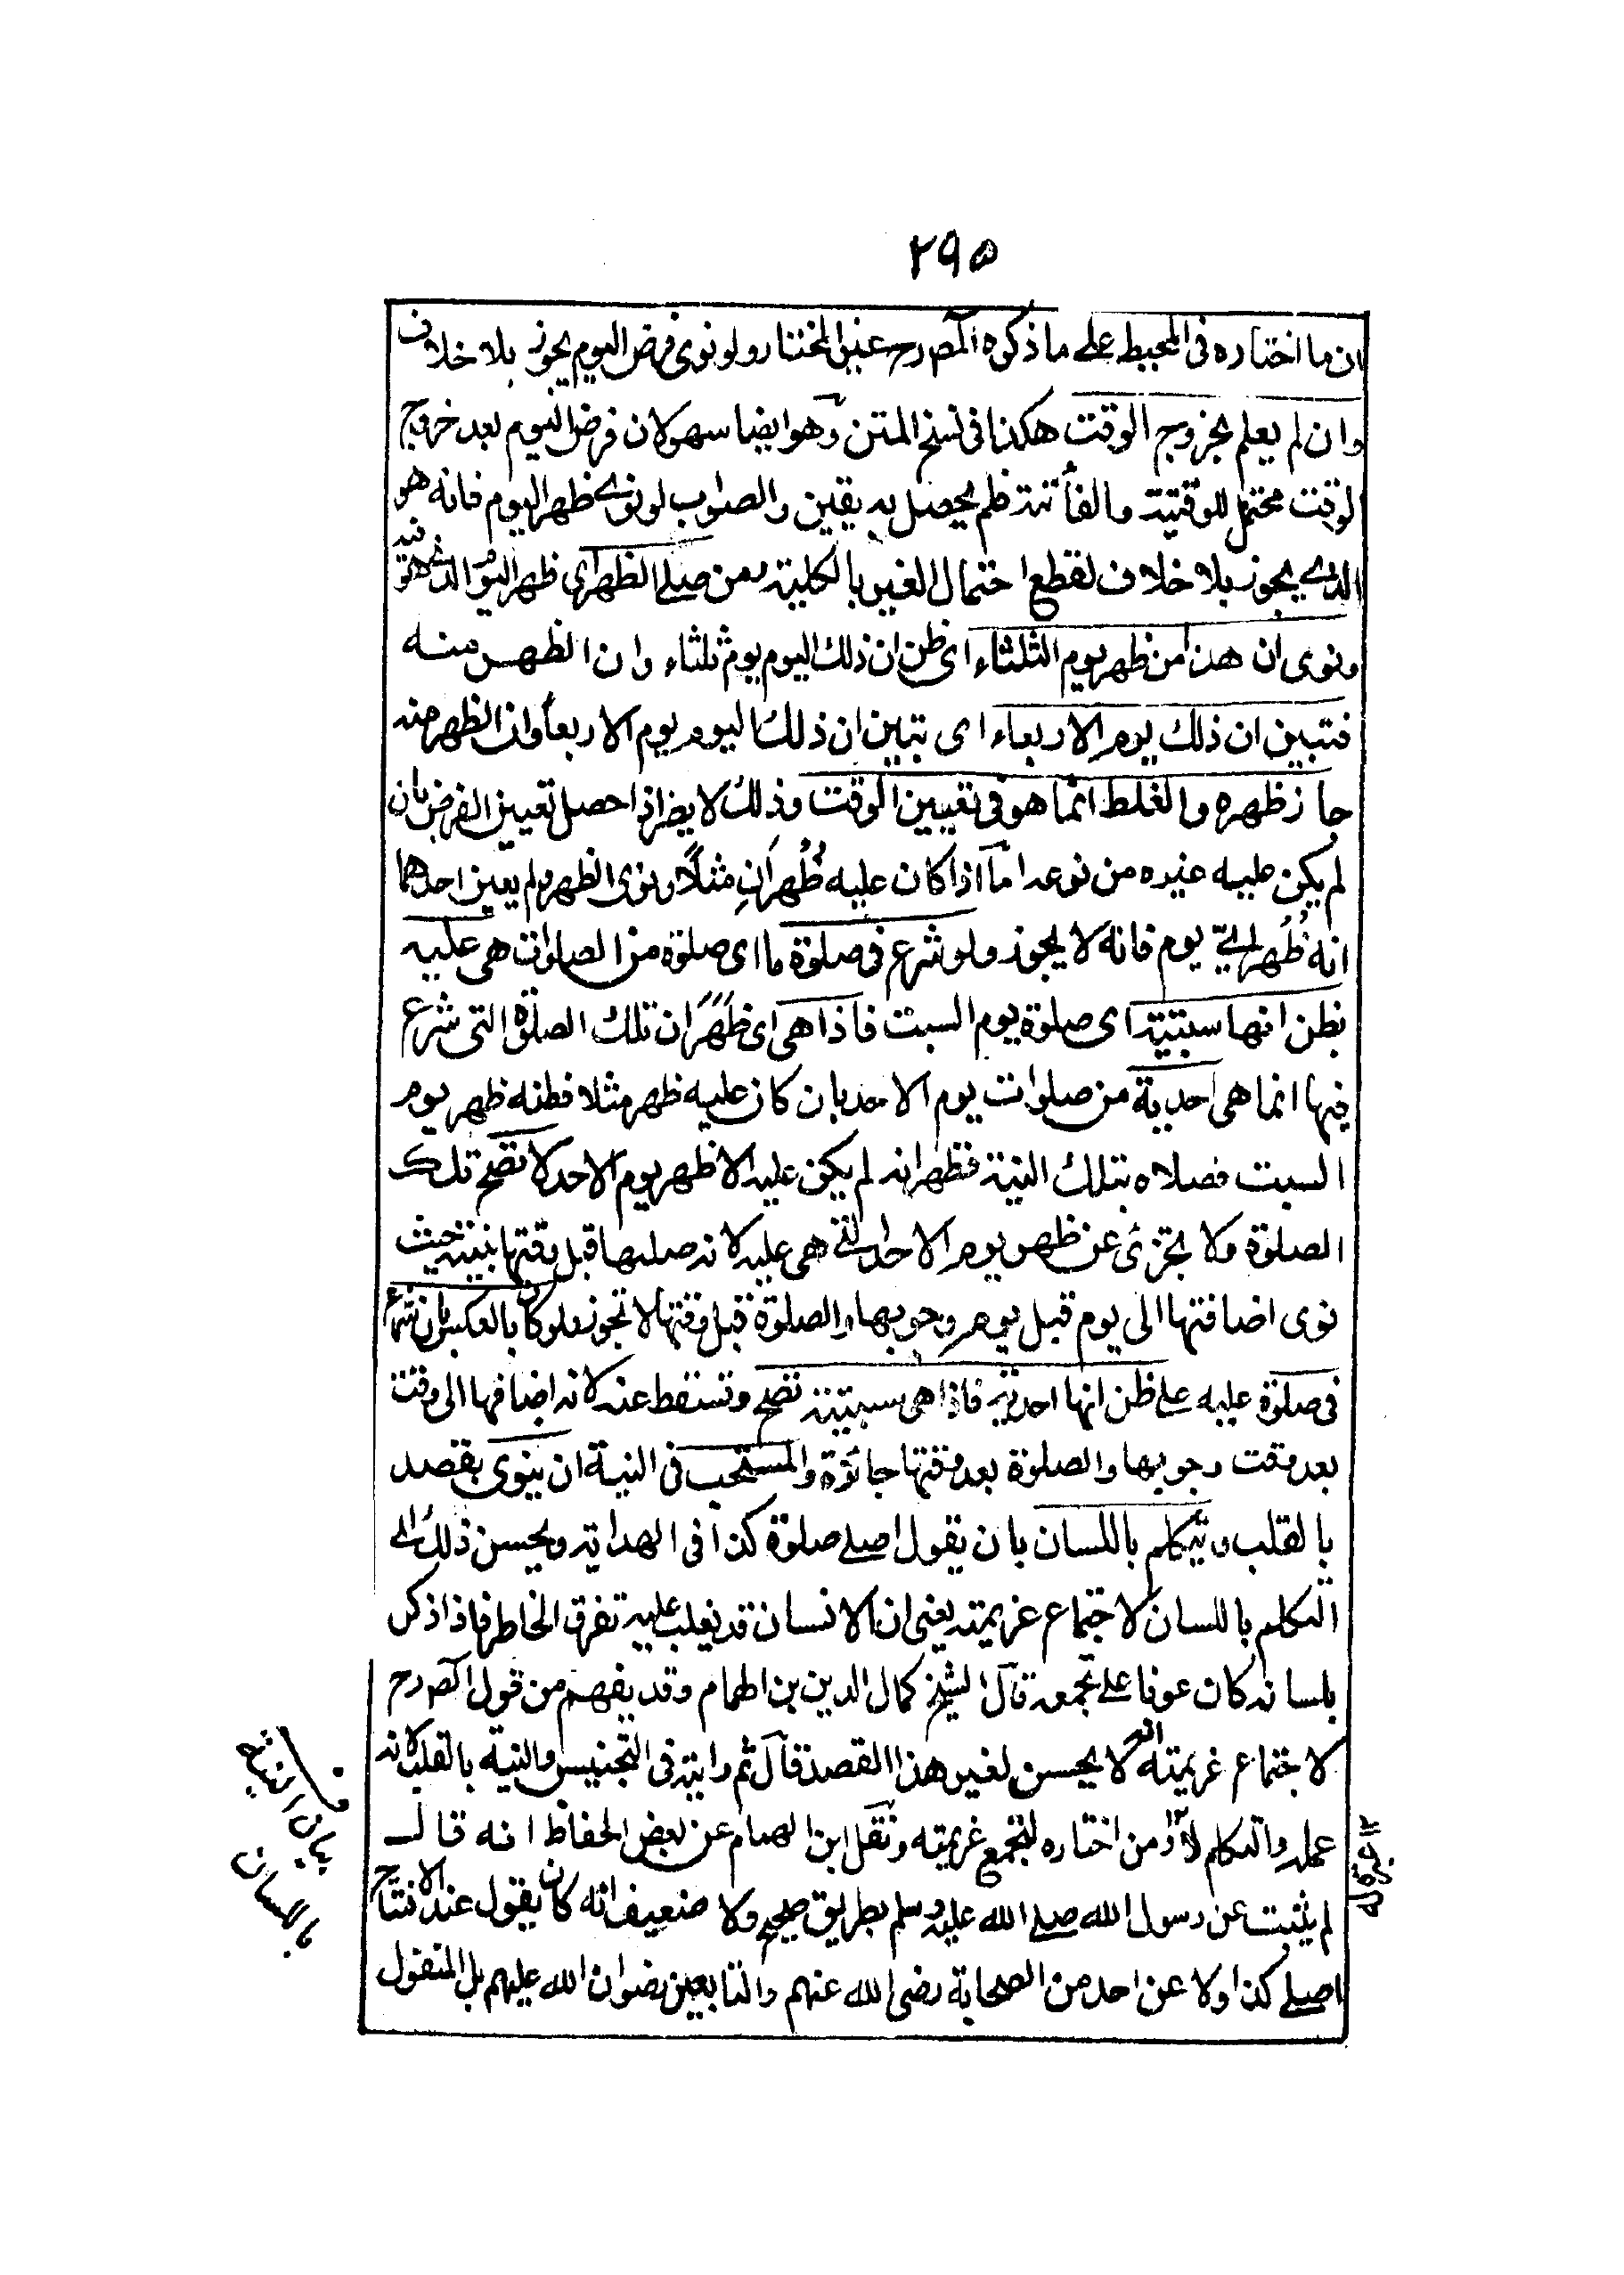 ٢٩٥
ان ما اختاره فى المحيط على ما ذكره المصرح غير المختار ولو نوى فرض اليوم يجوز بلا خلاف
وان لم يعلم بخروج الوقت هكذا فى نسخ المتن وهو ايضا سهو لان فرض اليوم بعد خروج
الوقت محتمل للوقتية والفائتة فلم يحصل به يقين والصواب لو نوى ظهر اليوم فانه هو
الذى يجوز بلا خلاف لقطع احتمال الغير بالكلية ومن صلى الظهر اى ظهر اليوم الذى هو فيه
ونوى ان هذا من ظهر يوم الثلثاء اى ظن ان ذلك اليوم يوم ثلثاء وان الظهر منه
فتبين ان ذلك يوم الاربعاء اى تبين ان ذلك اليوم يوم الاربعاء وان الظهر منه
جاز ظهره والغلط انما هو فى تعيين الوقت وذلك لا يضر اذا حصل تعيين الفرض بان
لم يكن عليه غيره من نوعه اما اذا كان عليه ظُهرانِ مثلاً ونوى الظهر ولم يعين احدهما
انه ظُهر اىّ يوم فانه لا يجوز ولو شرع فى صلوة ما اى صلوة من الصلوات هى عليه
بظن انها سبتية اى صلوة يوم السبت فاذا هى اى ظَهَرَ ان تلك الصلوة التى شرع
فيها انما هى احدية من صلوات يوم الاحد بان كان عليه ظهر مثلا فظنه ظهر يوم
السبت فصلاه بتلك النية فظهر انه لم يكن عليه الا ظهر يوم الاحد لا تصح تلك
الصلوة ولا يجزئ عن ظهر يوم الاحد التى هى عليه لانه صلىها قبل وقتها بنيته حيث
نوى اضافتها الى يوم قبل يوم وجوبها والصلوة قبل وقتها لا تجوز ولو كان بالعكس بان شرع
فى صلوة عليه على ظن انها احدية فاذا هى سبتية تصح وتسقط عنه لانه اضافها الى وقت
بعد وقت وجوبها والصلوة بعد وقتها جائزة والمستحب فى النية ان ينوى بقصد
بالقلب ويتكلم باللسان بان يقول اصلى صلوة كذا فى الهداية ويحسن ذلك اى
التكلم باللسان لاجتماع عزيمته يعنى ان الانسان قد يغلب عليه تفرق الخاطر فاذا ذكر
بلسانه كان عونا على تجمعه قال الشيخ كمال الدين بن الهمام وقد يفهم من قول المصرح
لاجتماع عزيمته انه لا يحسن لغير هذا القصد قال ثم رايته فى التجنيس والنية بالقلب لانه
عمله والتكلم لا ومن اختاره لتجتمع عزيمته ونقل ابن الهمام عن بعض الحفاظ انه قال
لم يثبت عن رسول الله صلى الله عليه وسلم بطريق صحيح ولا ضعيف انه كان يقول عند الافتتاح
اصلى كذا ولا عن احد من الصحابة رضى الله عنهم والتابعين رضوان الله عليهم بل المنقول
بيان النية
باللسان